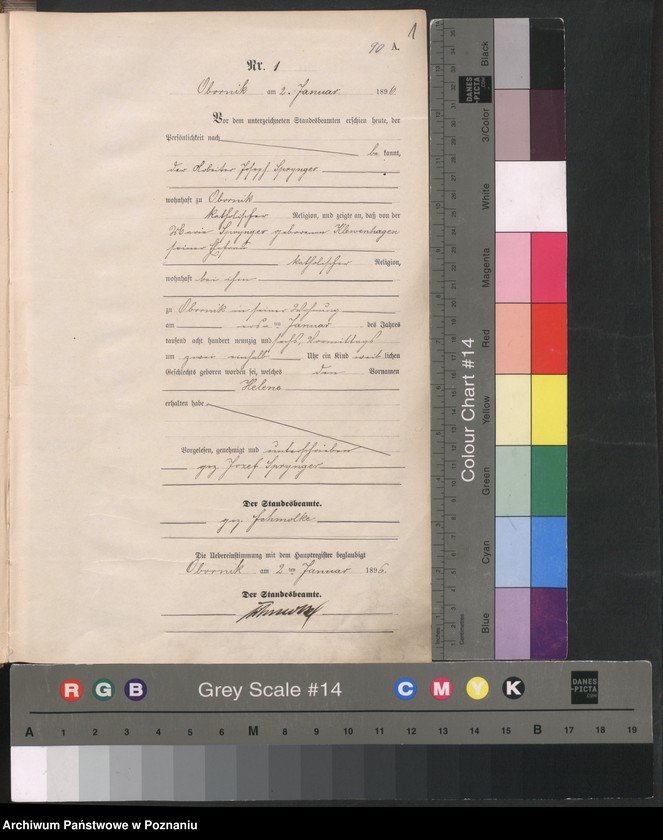 90 A.
1
Nr. 1
Obornik am 2. Januar 1896
Vor dem unterzeichneten Standesbeamten erschien heute, der
Persönlichkeit nach
be kannt,
der Arbeiter Joseph Sprynger
wohnhaft zu Obornik
katholischer Religion, und zeigte an, daß von der
Marie Sprynger geborenen Klewenhagen
seiner Ehefrau
katholischer Religion,
wohnhaft bei ihm
zu Obornik in seiner Wohnung
am ersten Januar des Jahres
tausend acht hundert neunzig und sechs, Vormittags
um zwei einhalb Uhr ein Kind weib lichen
Geschlechts geboren worden sei, welches den Vornamen
Helene
erhalten habe
Vorgelesen, genehmigt und unterschrieben
gez. Jozef Sprynger
Der Standesbeamte.
gez. Schmolke
Die Uebereinstimmung mit dem Hauptregister beglaubigt
Obornik am 2 ten Januar 1896.
Der Standesbeamte.
Schmolke
Colour Chart #14
Black
3/Color
White
Magenta
Red
Yellow
Green
Cyan
Blue
DANES
-PICTA
.COM
R G B Grey Scale #14 C M Y K
DANES
-PICTA
.COM
A 1 2 3 4 5 6 M 8 9 10 11 12 13 14 15 B 17 18 19
Archiwum Państwowe w Poznaniu